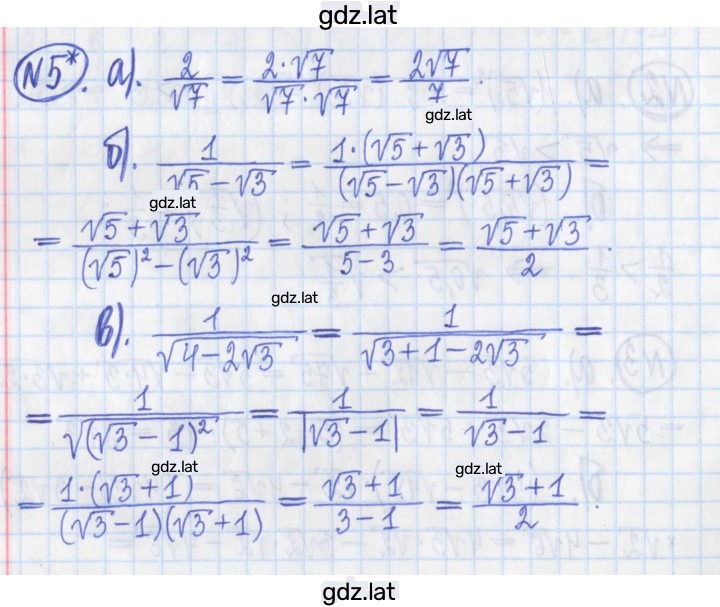 gdz.lat
№5*. а). 2/√7 = 2·√7/√7·√7 = 2√7/7.
gdz.lat
б). 1/√5-√3 = 1·(√5+√3)/(√5-√3)(√5+√3) =
gdz.lat
= √5+√3/(√5)²-(√3)² = √5+√3/5-3 = √5+√3/2.
gdz.lat
в). 1/√4-2√3 = 1/√3+1-2√3 =
= 1/√(√3-1)² = 1/|√3-1| = 1/√3-1 =
gdz.lat gdz.lat
= 1·(√3+1)/(√3-1)(√3+1) = √3+1/3-1 = √3+1/2.
gdz.lat